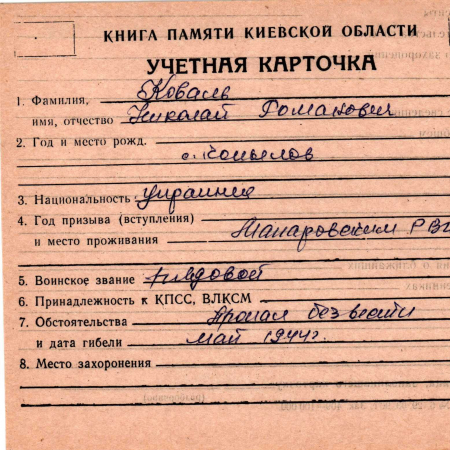 КНИГА ПАМЯТИ КИЕВСКОЙ ОБЛАСТИ
УЧЕТНАЯ КАРТОЧКА
1. Фамилия, Коваль
имя, отчество Николай Романович
2. Год и место рожд.
с. Копылов
3. Национальность украинец
4. Год призыва (вступления)
и место проживания Макаровским РВ
5. Воинское звание рядовой
6. Принадлежность к КПСС, ВЛКСМ
7. Обстоятельства Пропал без вести
и дата гибели май 1944г.
8. Место захоронения